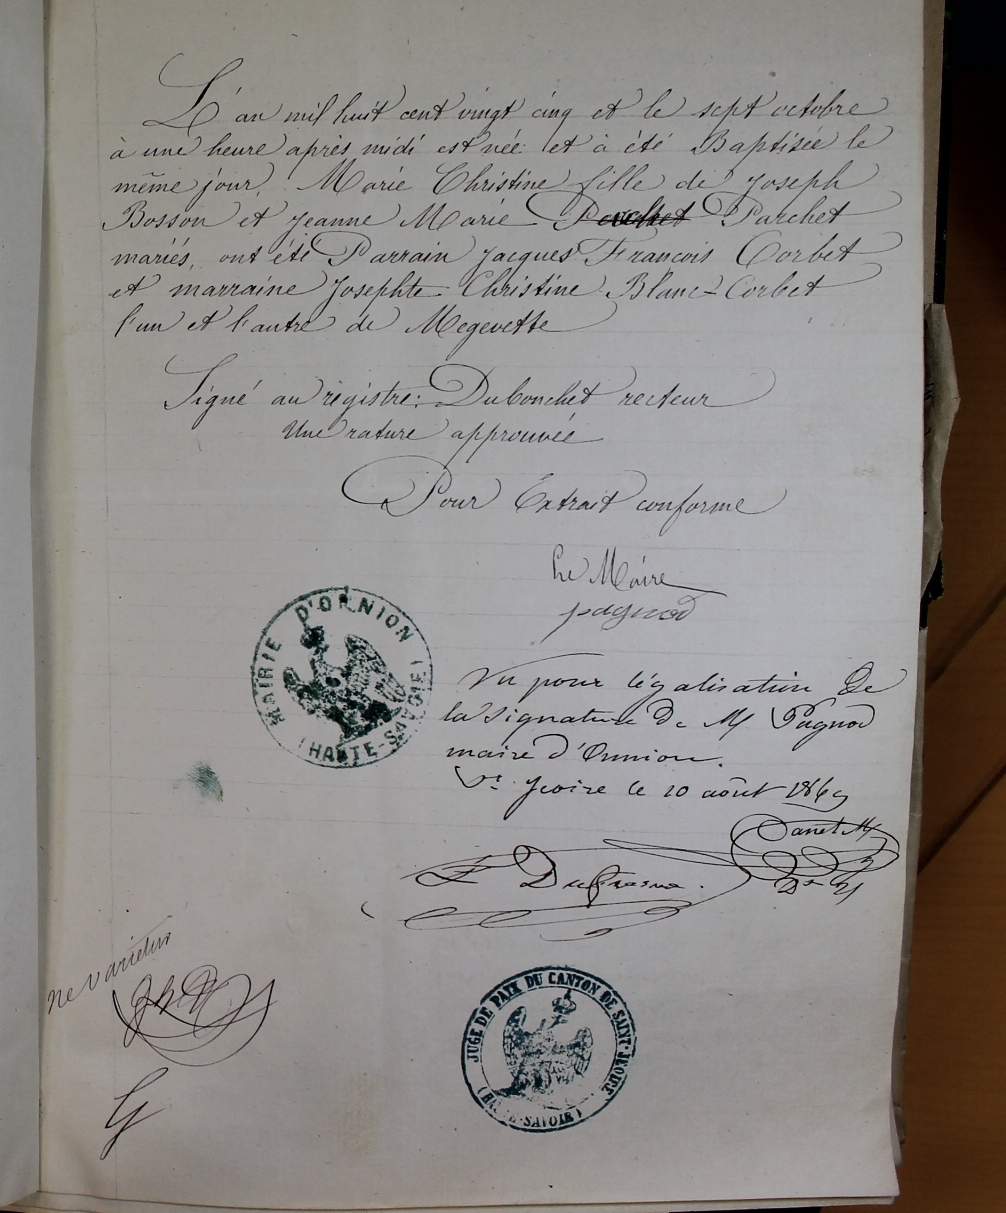 L'an mil huit cent vingt cinq et le sept octobre
à une heure après midi est née et à été Baptisée le
même jour, Marie Christine fille de Joseph
Bosson et Jeanne Marie Parchet
mariés, ont été Parrain Jacques François Corbet
et marraine Josephte Christine Blanc-Corbet
l'un et l'autre de Megevette
Signé au registre: Dubouchet recteur
Une rature approuvée
Pour Extrait conforme
Le Maire
pagnod
MAIRIE D'ONNION
(HAUTE-SAVOIE)
Vu pour légalisation De
la signature De M Pagnod
maire d'Onnion.
St Jeoire le 10 août 1869
Dufresne.
ne varietur
JUGE DE PAIX DU CANTON DE SAINT-JEOIRE
(HAUTE-SAVOIE)